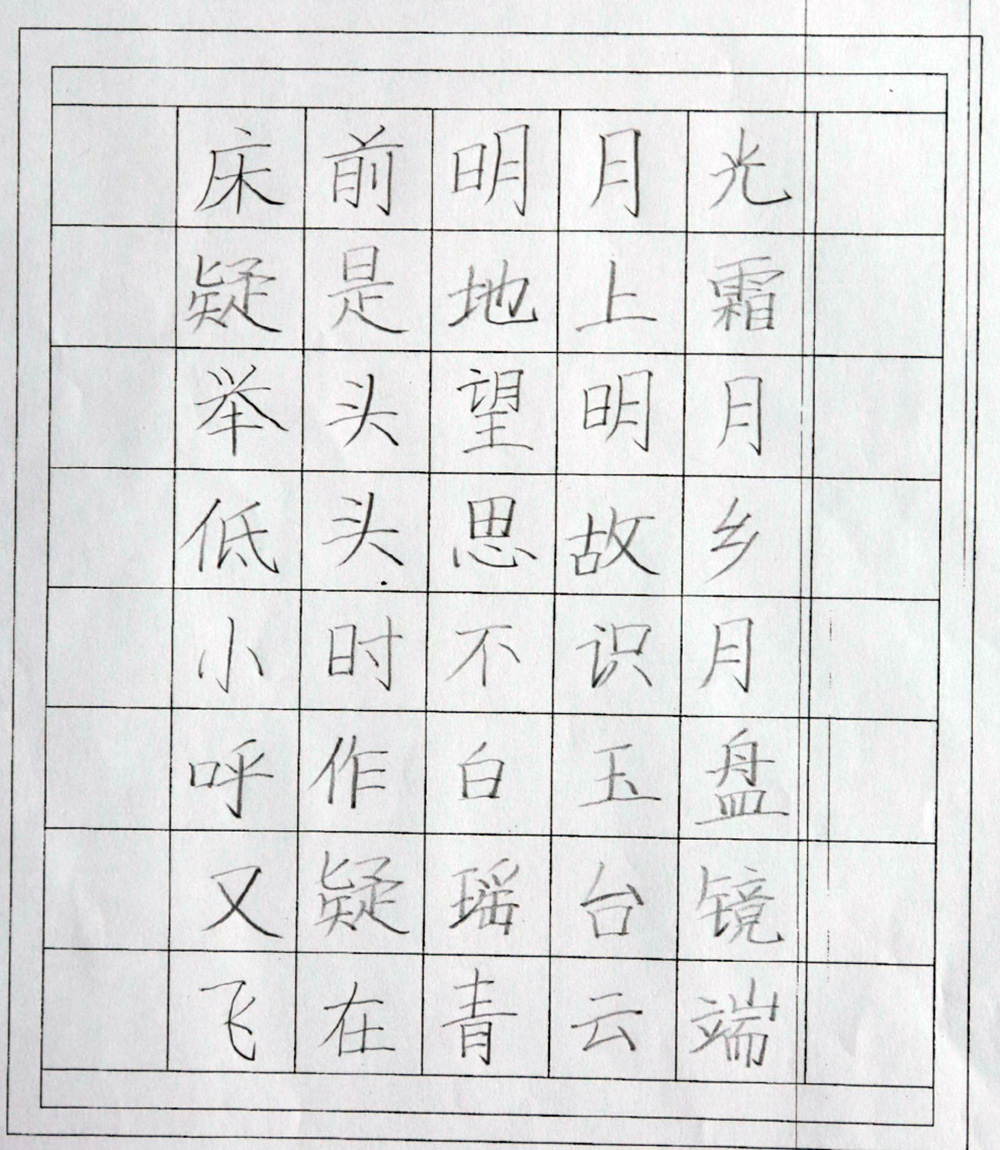 床前明月光
疑是地上霜
举头望明月
低头思故乡
小时不识月
呼作白玉盘
又疑瑶台镜
飞在青云端